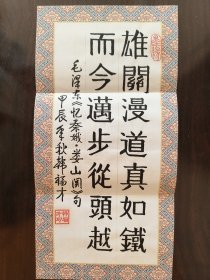 雄關漫道真如鐵
而今邁步從頭越
毛泽东《忆秦娥·娄山関》句
甲辰年秋韩福才